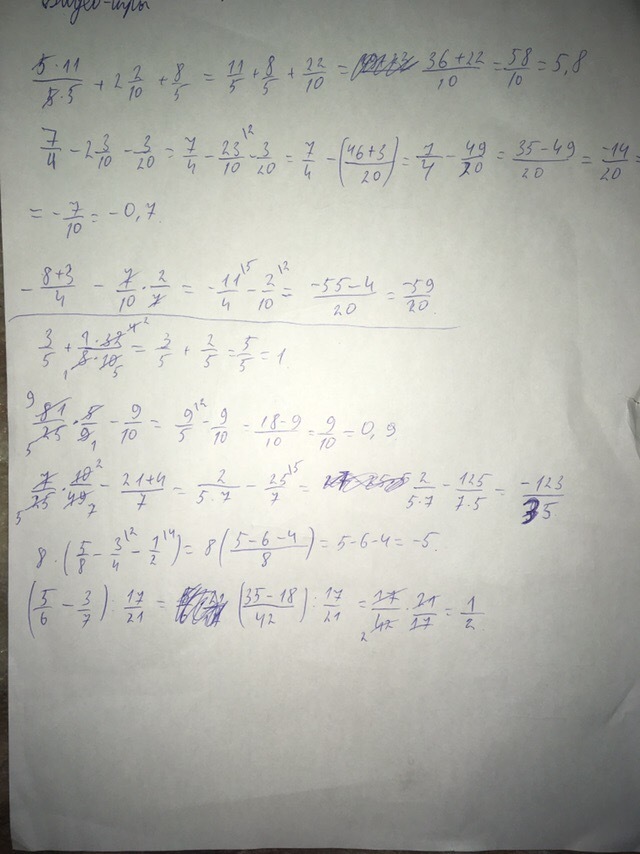 Видео-игры
5·11/8·5 + 2 2/10 + 8/5 = 11/5 + 8/5 + 22/10 = 36+22/10 = 58/10 = 5,8
7/4 - 2 3/10 - 3/20 = 7/4 - 23/10 \2 - 3/20 = 7/4 - (46+3/20) = 7/4 - 49/20 = 35-49/20 = -14/20 =
= - 7/10 = -0,7.
- 8+3/4 - 7/10 · 2/7 = - 11/4 \5 - 2/10 \2 = -55-4/20 = -59/20.
3/5 + = 3/5 + 2/5 = 5/5 = 1.
81/25 · 5/9 - 9/10 = 9/5 \2 - 9/10 = 18-9/10 = 9/10 = 0,9
7/25 · 10/49 - 21+4/7 = 2/5·7 - 25/7 \5 = 2/5·7 - 125/7·5 = -123/35
8 · (5/8 - 3/4 \2 - 1/2 \4) = 8(5-6-4/8) = 5-6-4 = -5.
(5/6 - 3/7) : 17/21 = (35-18/42) : 17/21 = 17/42 · 21/17 = 1/2